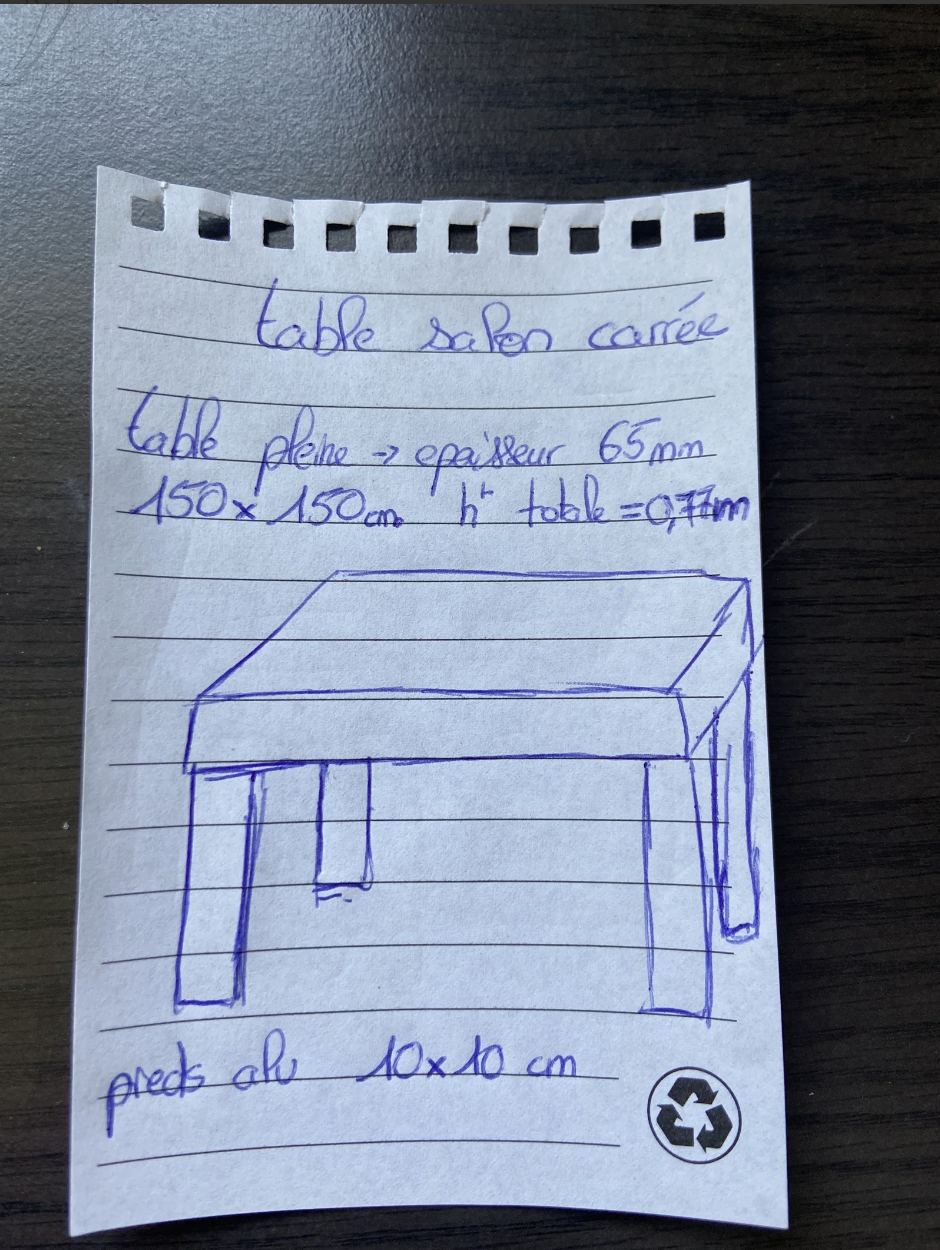 table salon carrée
table pleine → epaisseur 65mm
150 x 150cm ht totale = 0,77m
pieds alu 10x10 cm